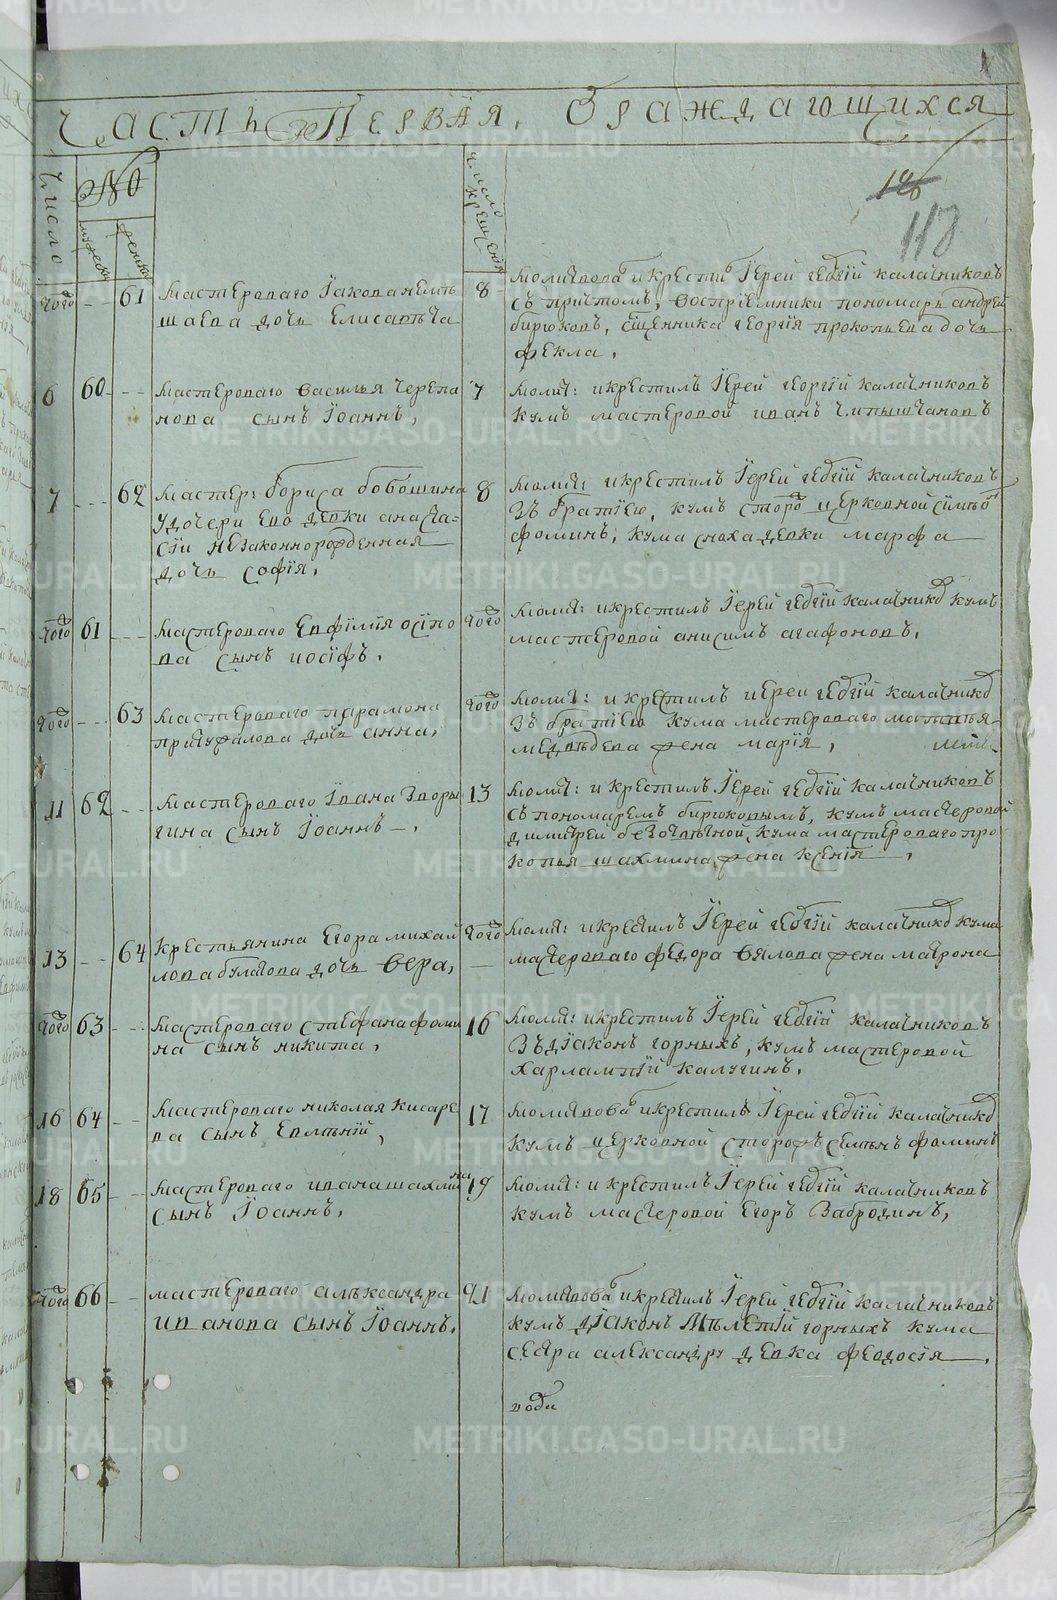 Часть Первая, О раждающихся
Число
№
мужеска
женска
число крещения
128
118
того
61
мастероваго Іакова Немть
шаева дочь Елисавѣта
8
молитвова и крести Іерей геоггій калачниковъ
съ притомъ, воспріемники пономарь андрей
бирюковъ, сщенника георгія прокопьева дочь
фекла,
6
60
мастероваго василья черепа
нова сынъ Іоаннъ,
7
молит: и крестилъ Іерей георгій калачниковъ
кумъ мастеровой иванъ
7
62
мастер: бориса бобошина
у дочери ево девки анаста=
сіи незаконнорожденная
дочь софія,
8
молит: и крестилъ Іерей геоггій калачниковъ
зъ братіею, кумъ сторо церковной симео
фоминъ, кума снаха девки марфа
того
61
мастероваго Евфимія осипо
ва сынъ иосифъ,
того
молит: и крестилъ Іерей геоггій калачнико кумъ
мастеровой анисимъ агафоновъ,
того
63
мастероваго парамона
дочь анна,
того
молит: и крестилъ иереи геоггій калачнико
зъ братіею кума мастероваго матвья
медвѣдева жена марія,
11
62
мастероваго Івана Зворы
гина сынъ Іоаннъ,
13
молит: и крестилъ Іерей геоггій калачниковъ
съ пономаремъ бирюковымъ, кумъ мастеровой
димитрей кума мастероваго про
копья шахмина жена ксенія,
13
64
Крестьянина Егора михай
лова булатова дочь вера,
того
молит: и крестилъ Іерей геоггій калачнико кума
мастероваго федора вялова жена матрона
того
63
мастероваго стефана фоми
на сынъ никита,
16
молит: и крестилъ Іерей геоггій калачниковъ
зъ діаконъ горныхъ, кумъ мастеровой
харлампій калугинъ,
16
64
мастероваго николая кисаре
ва сынъ Евмѣній,
17
молитвова и крестилъ Іерей геоггій калачнико
кумъ церковной сторожъ семьенъ фоминъ
18
65
мастероваго ивана шахмина
сынъ Іоаннъ,
19
молит: и крестилъ Іерей геоггій калачниковъ
кумъ мастеровой Егоръ Забродинъ,
того
66
мастероваго алѣксандра
иванова сынъ Іоаннъ,
21
молитвова и крестилъ Іерей геоггій калачниковъ
кумъ діаконъ Мѣлетій горныхъ кума
сестра александру девка феодосія,
води
METRIKI.GASO-URAL.RU